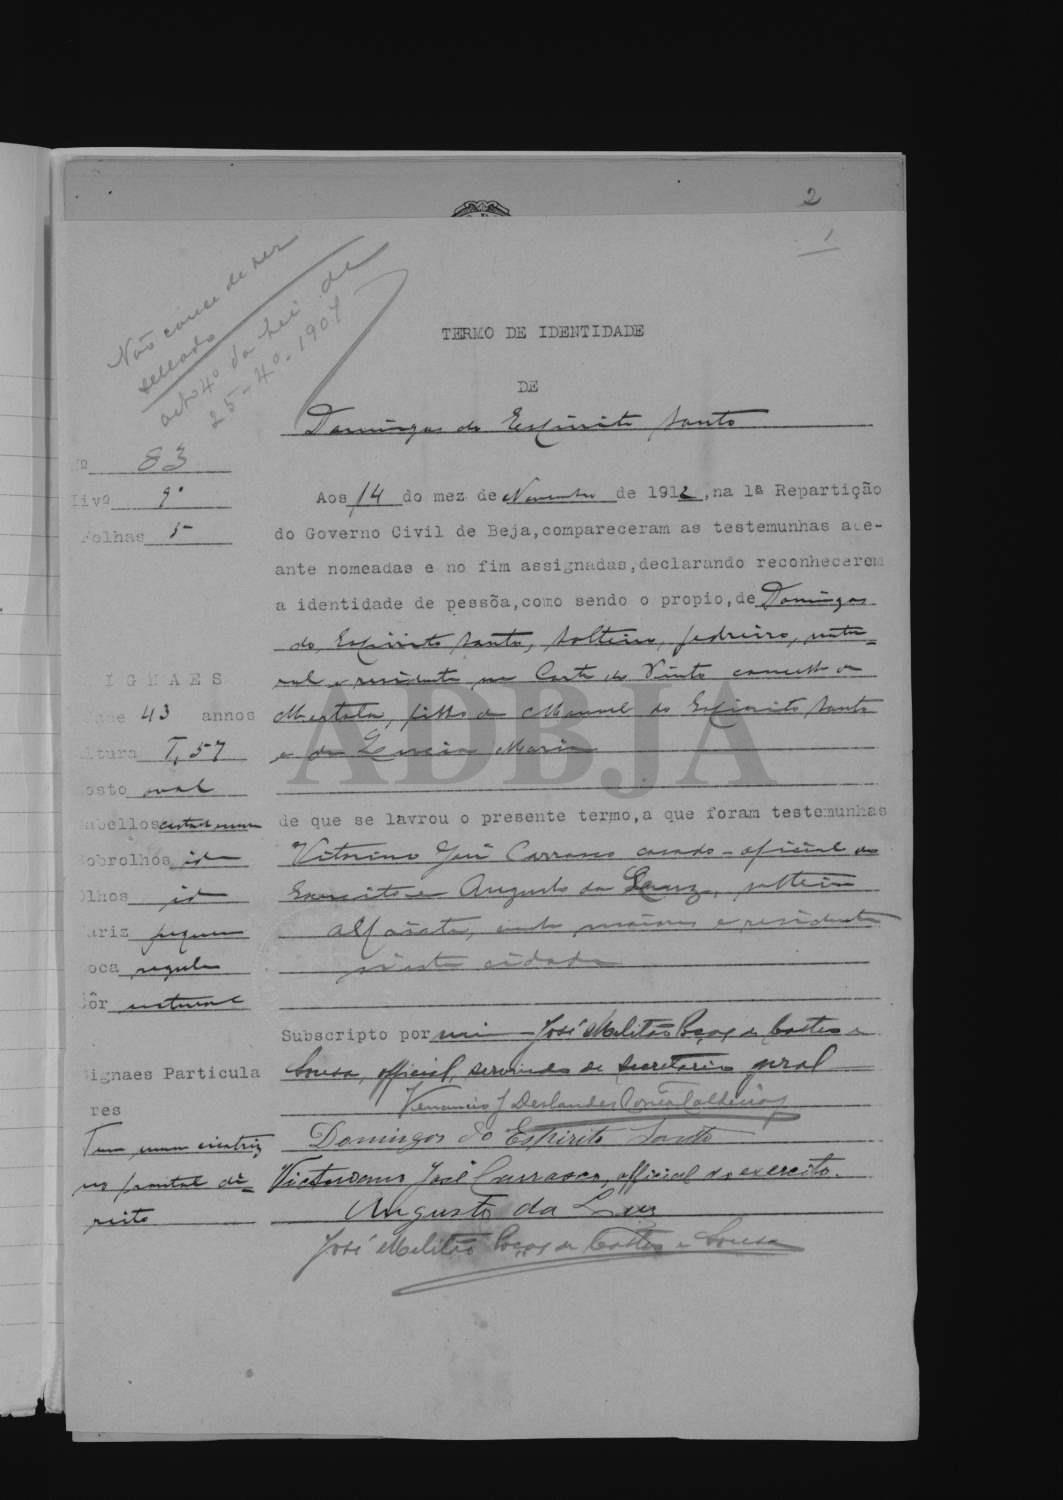 2
1
Não carece de ser
sellado
artº 4º da Lei de
25-4º-1907
TERMO DE IDENTIDADE
DE
Domingos do Espirito Santo
Nº 83
Livº 9º
Folhas 5
Aos 14 do mez de Novembro de 1912, na 1ª Repartição
do Governo Civil de Beja, compareceram as testemunhas ade-
ante nomeadas e no fim assignadas, declarando reconhecerem
a identidade de pessôa, como sendo o propio, de Domingos
do Espirito Santo, solteiro, pedreiro, natu=
ral e residente na Corte do Pinto concelho de
Mertola, filho de Manuel do Espirito Santo
e de Lucia Maria
IGNAES
43 annos
ltura 1,57
osto oval
abellos
obrolhos id
lhos id
ariz pequeno
oca regular
Côr natural
ADBJA
de que se lavrou o presente termo, a que foram testemunhas
Vitorino José Carrasco casado - oficial do
Exercito e Augusto da Luz, solteiro
alfaiate, ambos maiores e residentes
n'esta cidade
Subscripto por mim José Melitão Poças de Castro e
Sousa, official, servindo de secretario geral
Venancio J Deslandes Corrêa Caldeira
Domingos do Espirito Santo
José Carrasco, official do exercito.
Augusto da Luz
José Melitão Poças de Castro e Sousa
Signaes Particula
res
Tem uma cicatriz
no frontal di=
reito